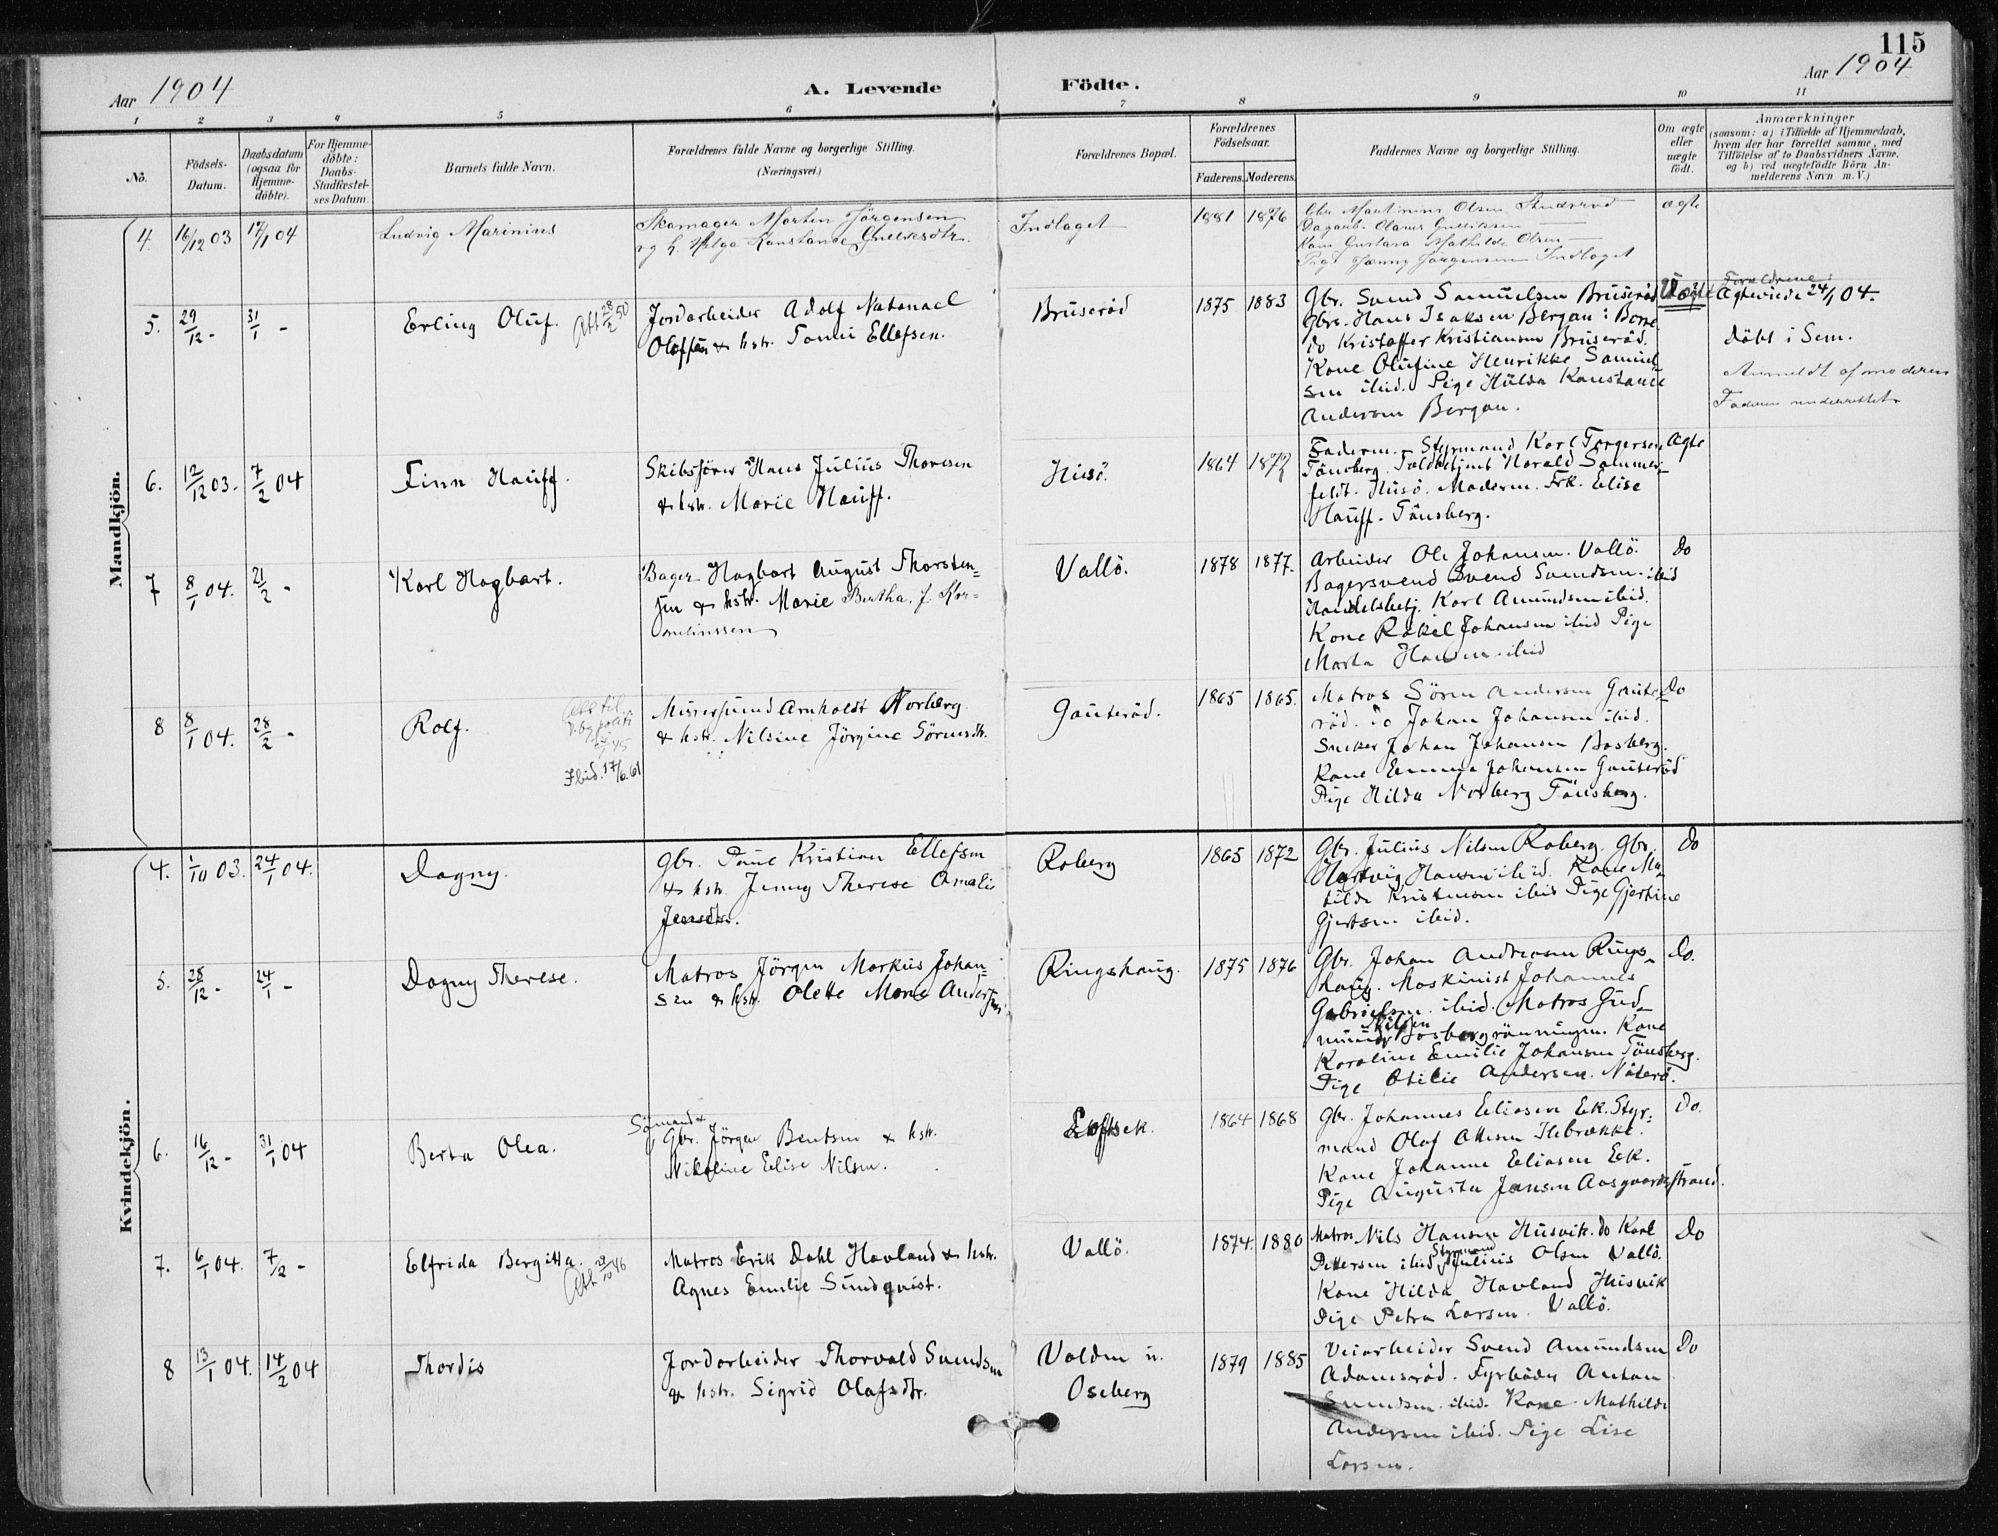 115
Aar 1904
A. Levende Födte.
Aar 1904
1 2 3 4 5 6 7 8 9 10 11
No.
Födsels-
Datum.
Daabsdatum
(ogsaa for
Hjemme-
döbte).
For Hjemme-
döbte:
Daabs-
Stadfæstel-
ses Datum.
Barnets fulde Navn.
Forældrenes fulde Navne og borgerlige Stilling.
(Næringsvei.)
Forældrenes Bopæl.
Forældrenes
Födselsaar.
Faderens. Moderens.
Faddernes Navne og borgerlige Stilling.
Om ægte
eller
uægte
födt.
Anmærkninger
(saasom: a) i Tilfælde af Hjemmedaab,
hvem der har forrettet samme, med
Tilföielse af to Daabsvidners Navne,
og b) ved uægtefödte Börn An-
melderens Navn m. V.)
Mandkjön.
4. 16/12 03 17/1 04
Ludvig Marinius
Skomager Morten Jörgensen
og h. Helga Konstance Gulliksdtr.
Indlaget
1881 1876
Gbr. Martinius Olsen
Olaves Gulliksen
Gustava Mathilde Olsen
Pige Jenny Jörgensen Indlaget
ægte
5. 29/12 - 31/1 -
Erling Oluf. Att 28/2 50
Jordarbeider Adolf Natanael
Oloffsen & hstr. Tomei Ellefsen.
Bruseröd
1875 1883
Gbr. Svend Samuelsen Bruseröd
Gbrs. Hans Isaksen Bergan i Borre
do Kristoffer Kristiansen Bruseröd.
Kone Olufine Henrikke Samuel-
sen ibid. Pige Hulda Konstance
Andersen Bergan.
Uægte
Forældrene:
Ægteviede 24/1 04.
döbt i Sem.
Anmeldt af moderen
Faderen underrettet
6. 12/12 03. 7/2 04
Finn Hauff.
Skibsförer Hans Julius Thoresen
& hstr. Marie Hauff.
Husö.
1864 1872
Faderen. Styrmand Karl Torgersen
Tönsberg. Toldbetjent Harald Sommer-
feldt. Husö. Moderen. Frk. Elise
Hauff. Tönsberg.
Ægte
7 8/1 04. 21/2 -
Karl Hagbart.
Bager Hagbart August Thorsten-
sen & hstr. Marie Bertha, f. Kor-
neliussen
Vallö.
1878 1877.
Arbeider Ole Johansen. Vallö.
Bagersvend Svend Svendsen ibid
Handelsbetj. Karl Amundsen ibid.
Kone Rakel Johansen ibid Pige
Marta Hansen ibid
Do
8 8/1 04. 28/2 -
Rolf.
Ibid. 17/6. 61
Arnholdt Norberg
& hstr. Nilsine Jörgine Sörensdtr.
Gauteröd.
1865 1865.
Matros Sören Andersen Gaute-
röd. Do Johan Johansen ibid.
Snekker Johan Johansen Basberg.
Kone Emma Johansen Gauteröd
Pige Hilda Norberg Tönsberg.
Do
Kvindekjön.
4. 1/10 03. 24/1 04.
Dagny.
Gbr. Paul Kristian Ellefsen
& hstr. Jenny Therese Amalie
Jensdtr.
Roberg
1865 1872
Gbr. Julius Nilsen Roberg. Gbr.
Hartvig Hansen ibid. Kone Ma-
tilde Kristensen ibid Pige Gjertine
Gjertsen ibid.
Do
5. 28/12 - 24/1 -
Dagny Therese.
Matros Jörgen Markus Johan-
sen & hstr. Olette Marie Andersen
Ringshaug.
1875 1876
Gbr. Johan Andreasen Rings-
haug. Maskinist Johannes
Gabrielsen ibid. Matros Gud-
mund Nilsen Basbergrönningen. Kone
Karoline Emilie Johansen Tönsberg.
Pige Otilie Andersen. Nöterö.
Do.
6. 16/12 - 31/1 04
Berta Olea.
Sömand &
Gbr. Jörgen Bentsen & hstr.
Nikoline Elise Nilsen.
1864 1868
Gbr. Johannes Eliasen Ek. Styr-
mand Olaf Ottesen Ilebrække.
Kone Johanne Eliasen Eek.
Pige Augusta Jansen Aasgaardsstrand.
Do.
7. 6/1 04. 7/2 -
Elfrida Bergitta. Att 21/10 46
Matros Erik Dahl Havland & hstr.
Agnes Emilie Sundqvist.
Vallö.
1874. 1880
Matros Nils Hansen Husvik. do Karl
Pettersen ibid Styrmand Julius Olsen Vallö.
Kone Hilda Havland Husvik
Pige Petra Larsen. Vallö.
Do
8 13/1 04. 14/2 04
Thordis
Jordarbeider Thorvald Svendsen
& hstr. Sigrid Olafsdtr.
Volden u.
Oseberg
1879 1885
Veiarbeider Svend Amundsen
Adamsröd. Fyrböder Anton
Svendsen ibid. Kone Mathilde
Andersen ibid. Pige Lise
Larsen.
Do